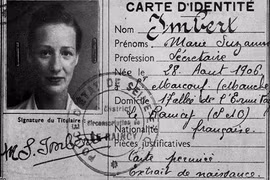 CARTE D'IDENTITÉ
Nom Imbert
Prénoms Marie Suzanne
Profession Secrétaire
Née le 28 Aout 1906
Domicile 17 allée de l'Ermitage
le Raincy (S et O)
Nationalité française.
Pièces justificatives
Carte périmée
extrait de naissance.
Signature du Titulaire
M. S. Imbert